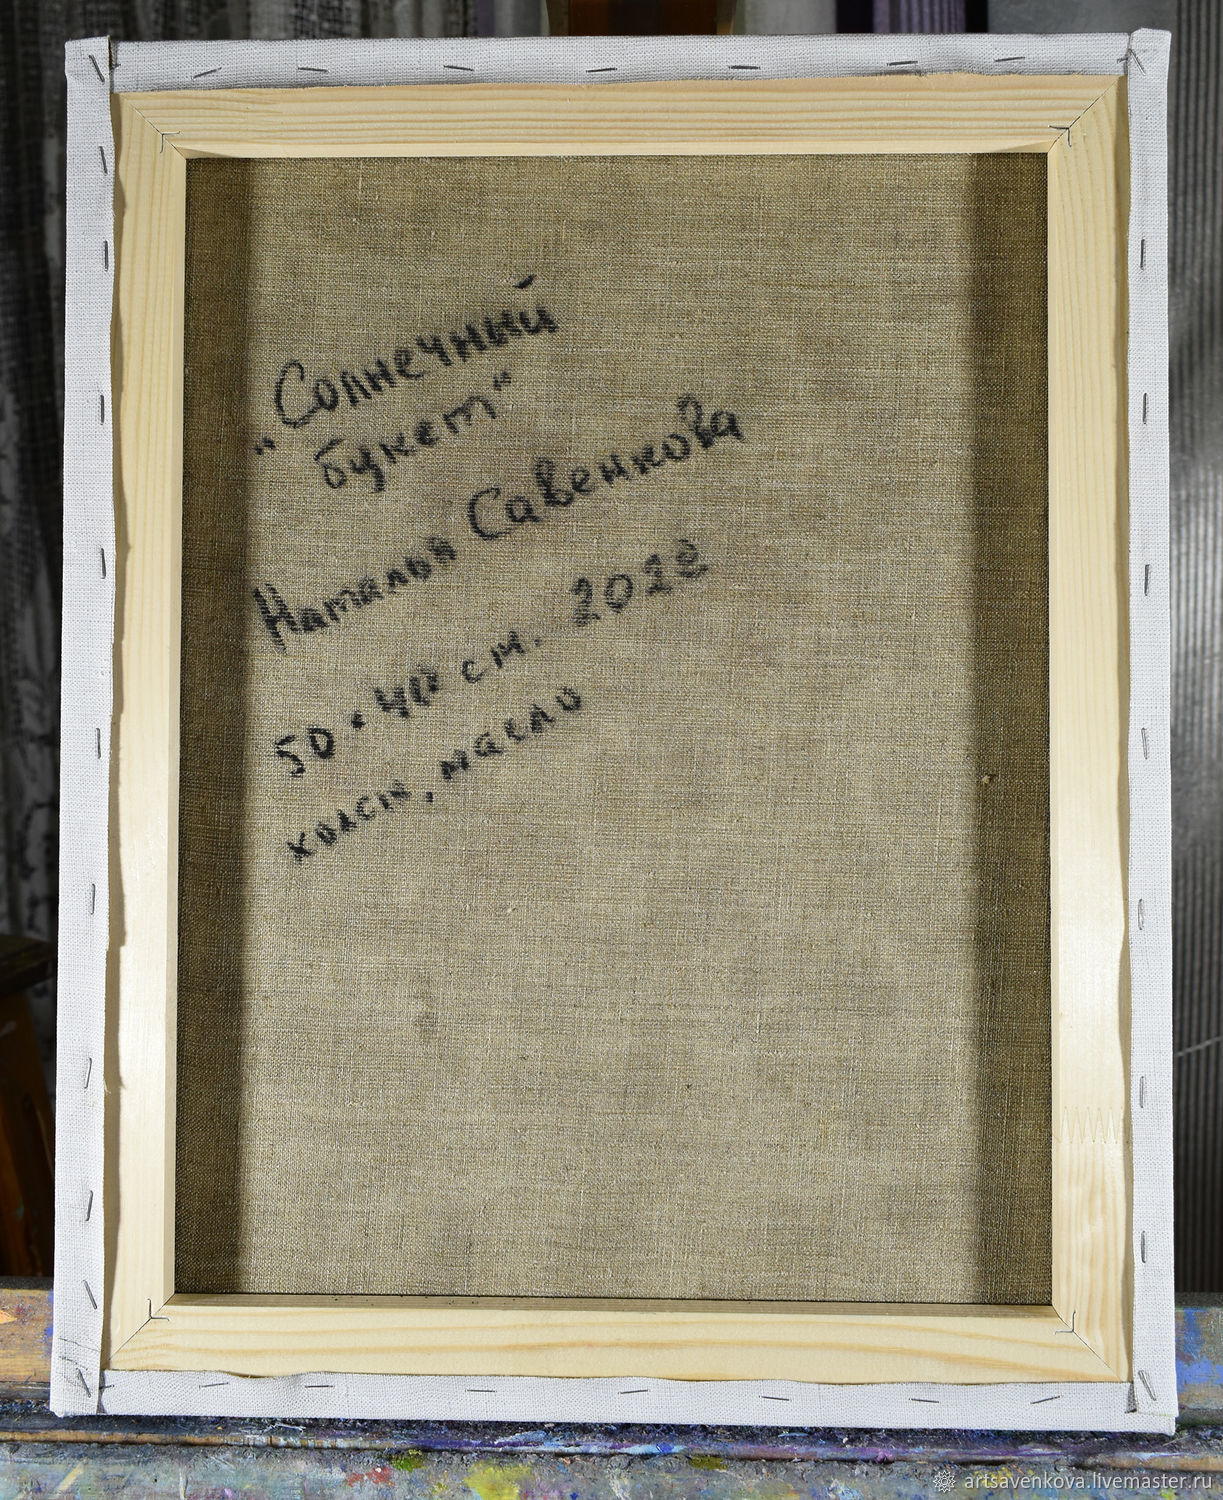 „Солнечный
букет“
Наталья Савенкова
50 • 40 см. 2022
холст, масло
artsavenkova.livemaster.ru